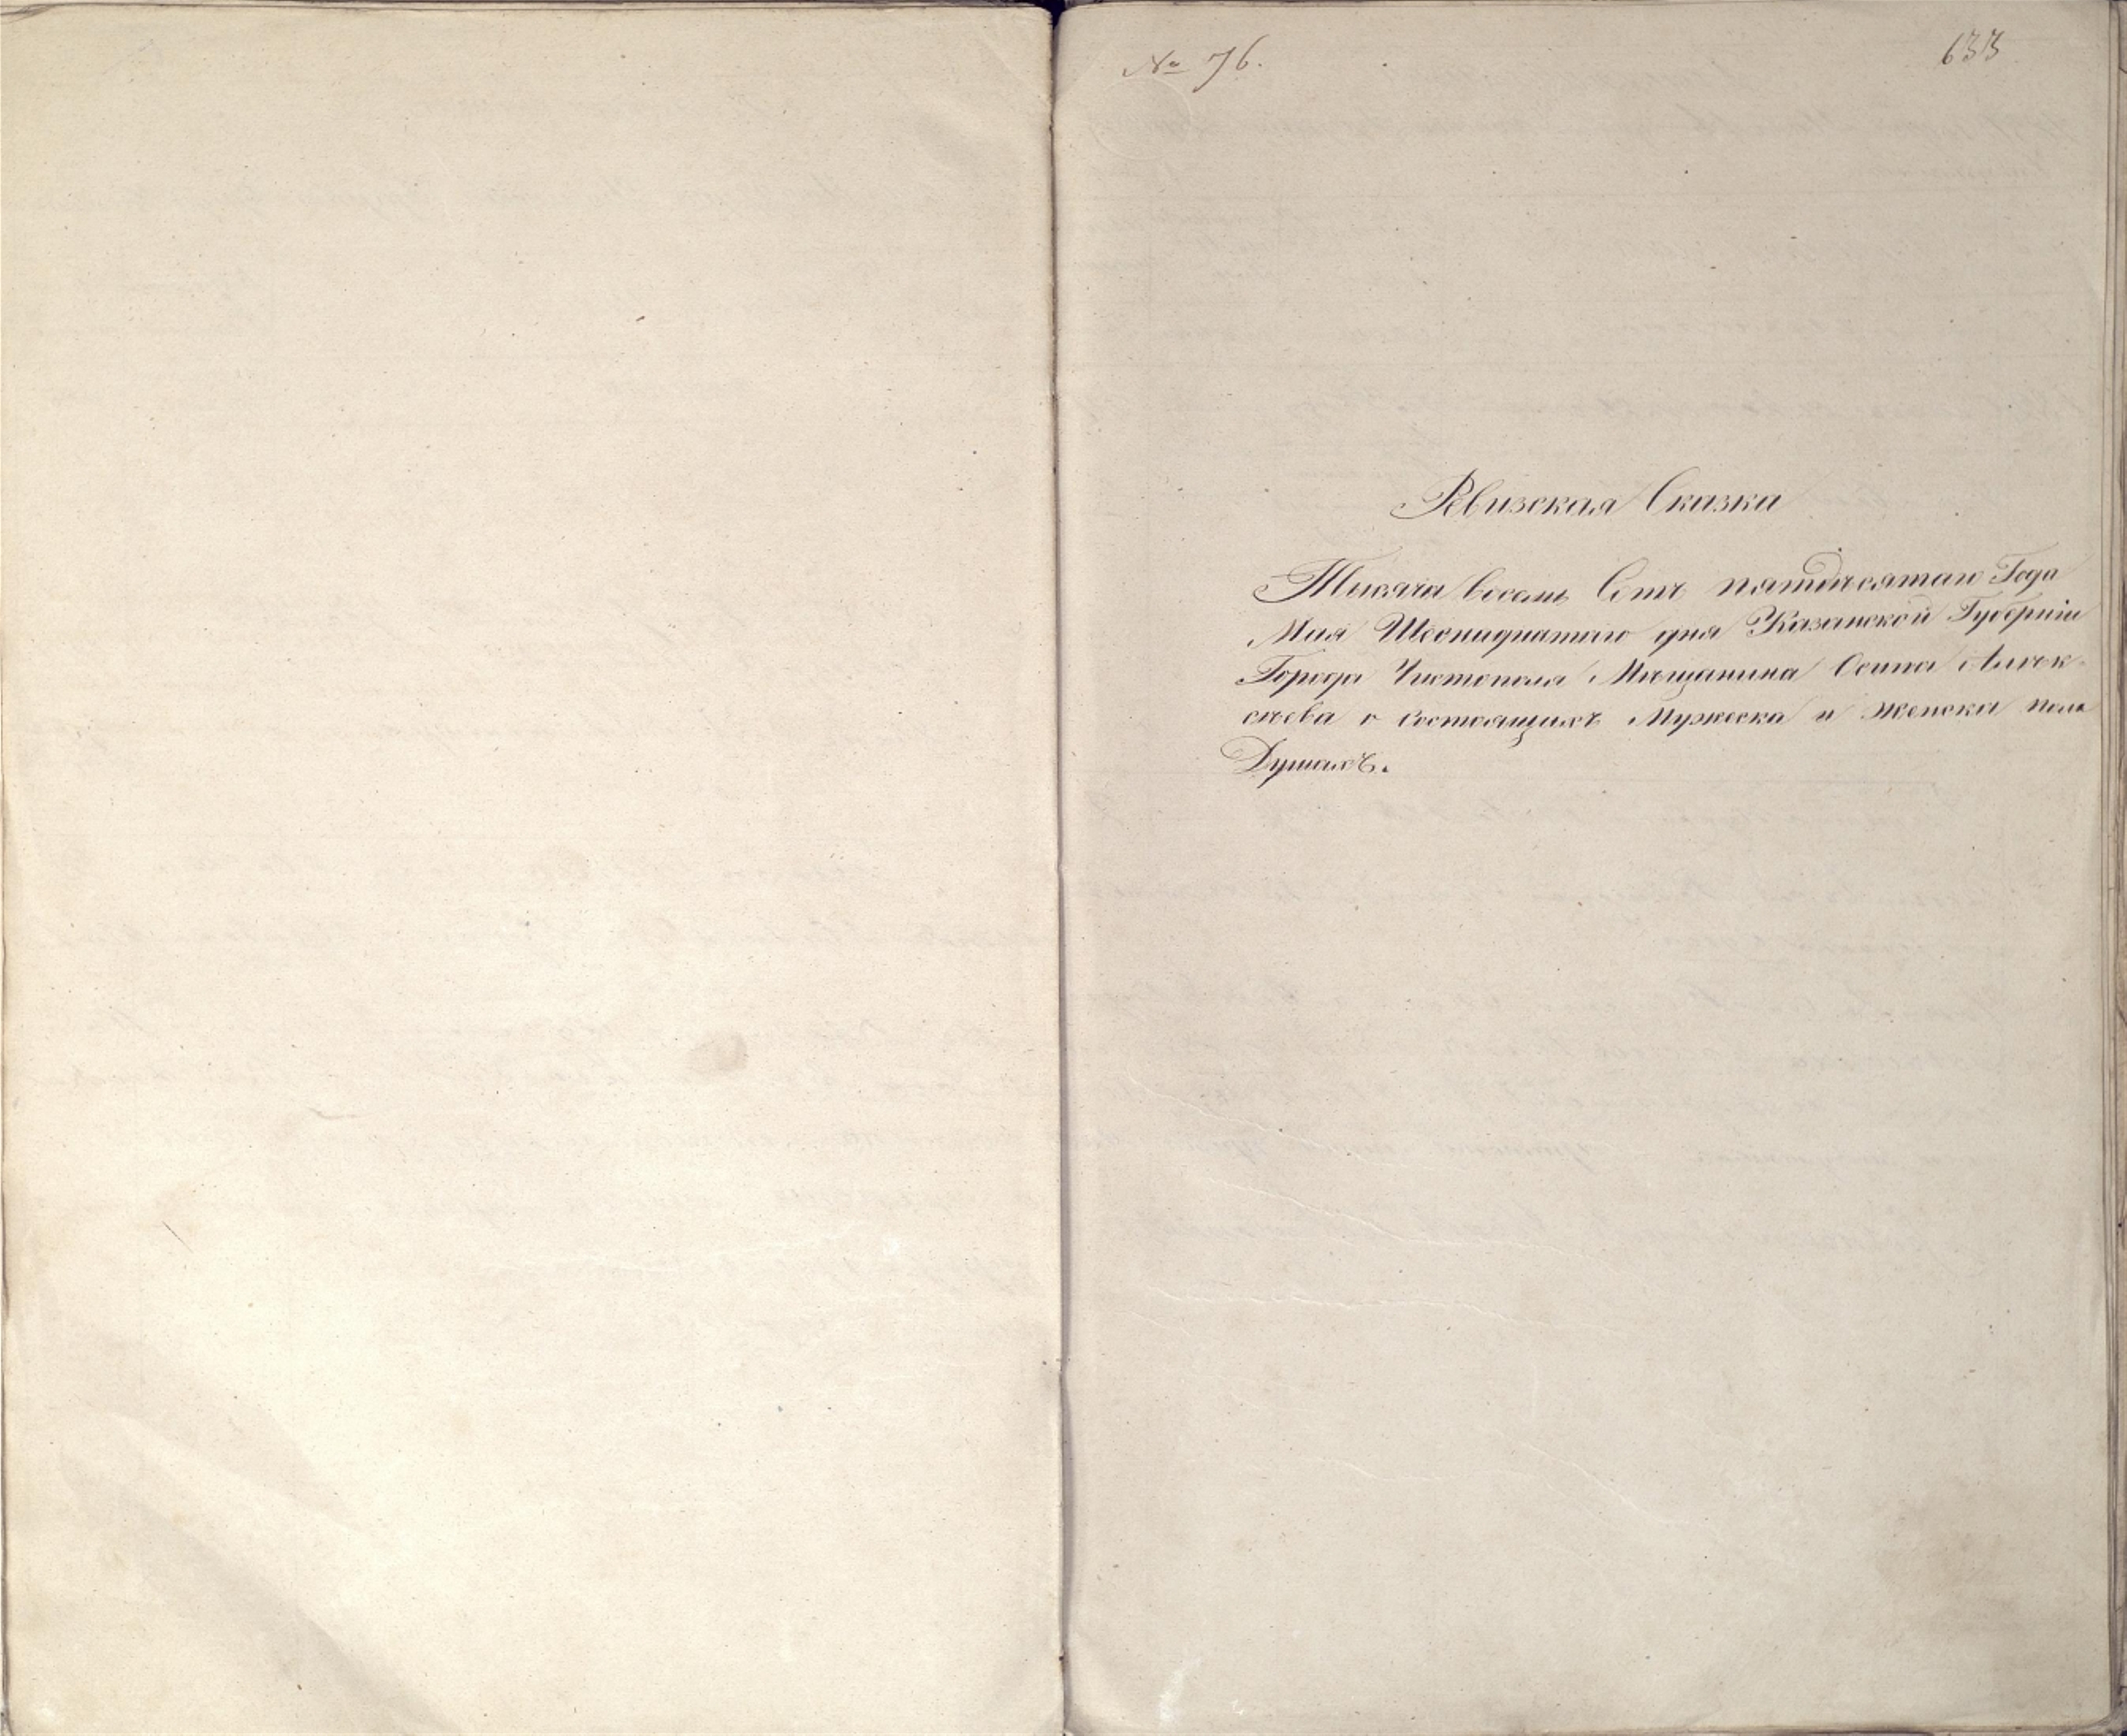 № 76.
633
Ревизская Сказка
Тысяча восемь Сотъ пятдѣсятаго Года
Мая Шеснадцатаго дня Казанской Губерніи
Города Чистополя Мѣщанина Осипа Алѣк-
сѣева о состоящихъ Мужеска и женска пола
Душахъ.